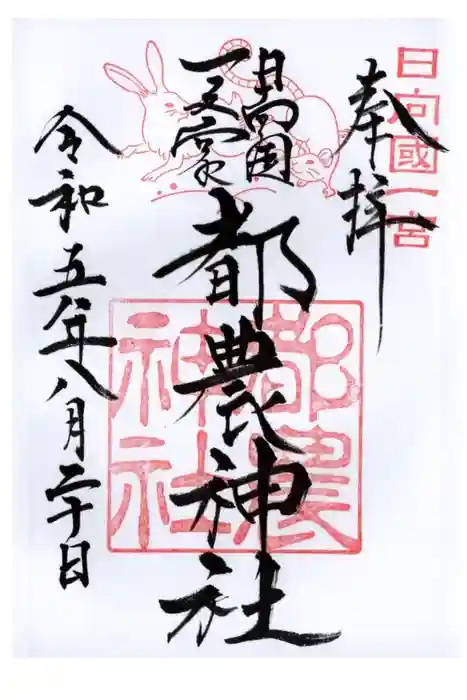 日向國一宮
奉拝
日向国
一之宮
都農神社
都農神社
令和五年八月二十日